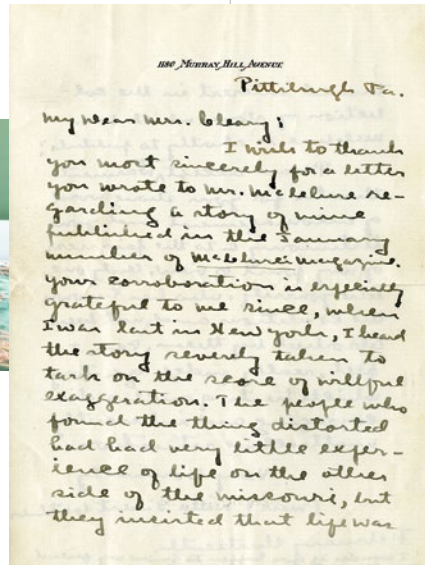 1180 MURRAY HILL AVENUE
Pittsburgh Pa.
My Dear Mrs. Cleary:
I write to thank
you most sincerely for a letter
you wrote to Mr. McClure re-
garding a story of mine
published in the January
number of McClure's magazine.
your corroboration is especially
grateful to me since, when
I was last in New York, I heard
the story severely taken to
task on the score of willful
exaggeration. The people who
found the thing distorted
had had very little exper-
ience of life on the other
side of the Missouri, but
they insisted that life was